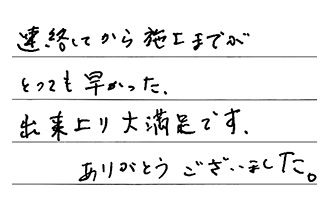 連絡してから施工までが
とっても早かった.
出来上り大満足です.
ありがとうございました。